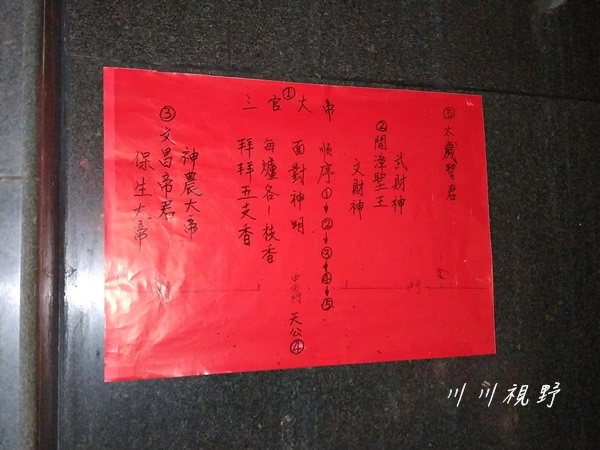 三官①大帝
⑤太歲聖君
武財神
②開漳聖王
文財神
順序①→②→③→④→⑤
面對神明
每壇各一枝香
拜拜五支香
神農大帝
③文昌帝君
保生大帝
天公④
川川視野